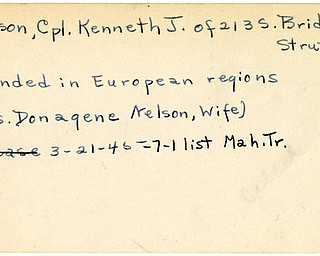 son, Cpl. Kenneth J. of 213 S. Brid
Stru
nded in European regions
s. Donagene Nelson, Wife)
3-21-45 - 7-1 list Mah. Tr.